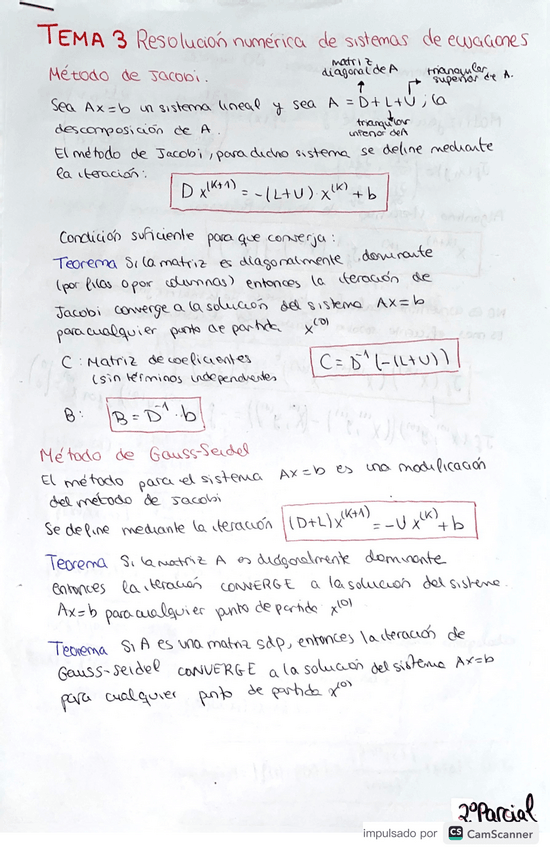 TEMA 3 Resolución numérica de sistemas de ecuaciones
Método de Jacobi.
matriz diagonal de A
triangular superior de A.
Sea Ax=b un sistema lineal y sea A = D+L+U, la
descomposición de A.
triangular inferior de A
El método de Jacobi, para dicho sistema se define mediante
la iteración:
D x^(K+1) = -(L+U) x^(K) + b
Condición suficiente para que converja:
Teorema Si la matriz es diagonalmente dominante
(por filas o por columnas) entonces la iteración de
Jacobi converge a la solución del sistema Ax=b
para cualquier punto de partida x^(0)
C: Matriz de coeficientes
(sin términos independientes
C = D^-1 (-(L+U))
B: B = D^-1 · b
Método de Gauss-Seidel
El método para el sistema Ax=b es una modificación
del método de Jacobi
Se define mediante la iteración (D+L)x^(K+1) = -U x^(K) + b
Teorema Si la matriz A es diagonalmente dominante
entonces la iteración CONVERGE a la solución del sistema
Ax=b para cualquier punto de partida x^(0)
Teorema Si A es una matriz sdp, entonces la iteración de
Gauss-Seidel CONVERGE a la solución del sistema Ax=b
para cualquier punto de partida x^(0)
2º Parcial
impulsado por CS CamScanner